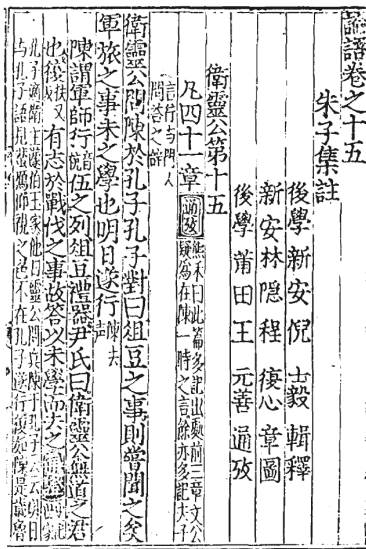 論語卷之十五
朱子集註
後學新安倪 士毅 輯釋
新安林隱程 復心 章圖
後學莆田王 元善 通攷
衛靈公第十五
凡四十一章 通攷 熊禾曰此篇多記出處前三章文公
疑爲在陳一時之言餘亦多記夫子
言行与門人
問答之辞
衛靈公問陳於孔子孔子對曰俎豆之事則嘗聞之矣
軍旅之事未之學也明日遂行 陳去聲
陳謂軍師行 伍之列俎豆禮器尹氏曰衛靈公無道之君
也復 扶又反 有志於戰伐之事故答以未學而去之
孔子適衛主蘧伯玉家他日靈公問兵陳于孔子
与孔子語見蜚鴈仰視之色不在孔子遂行復如陳